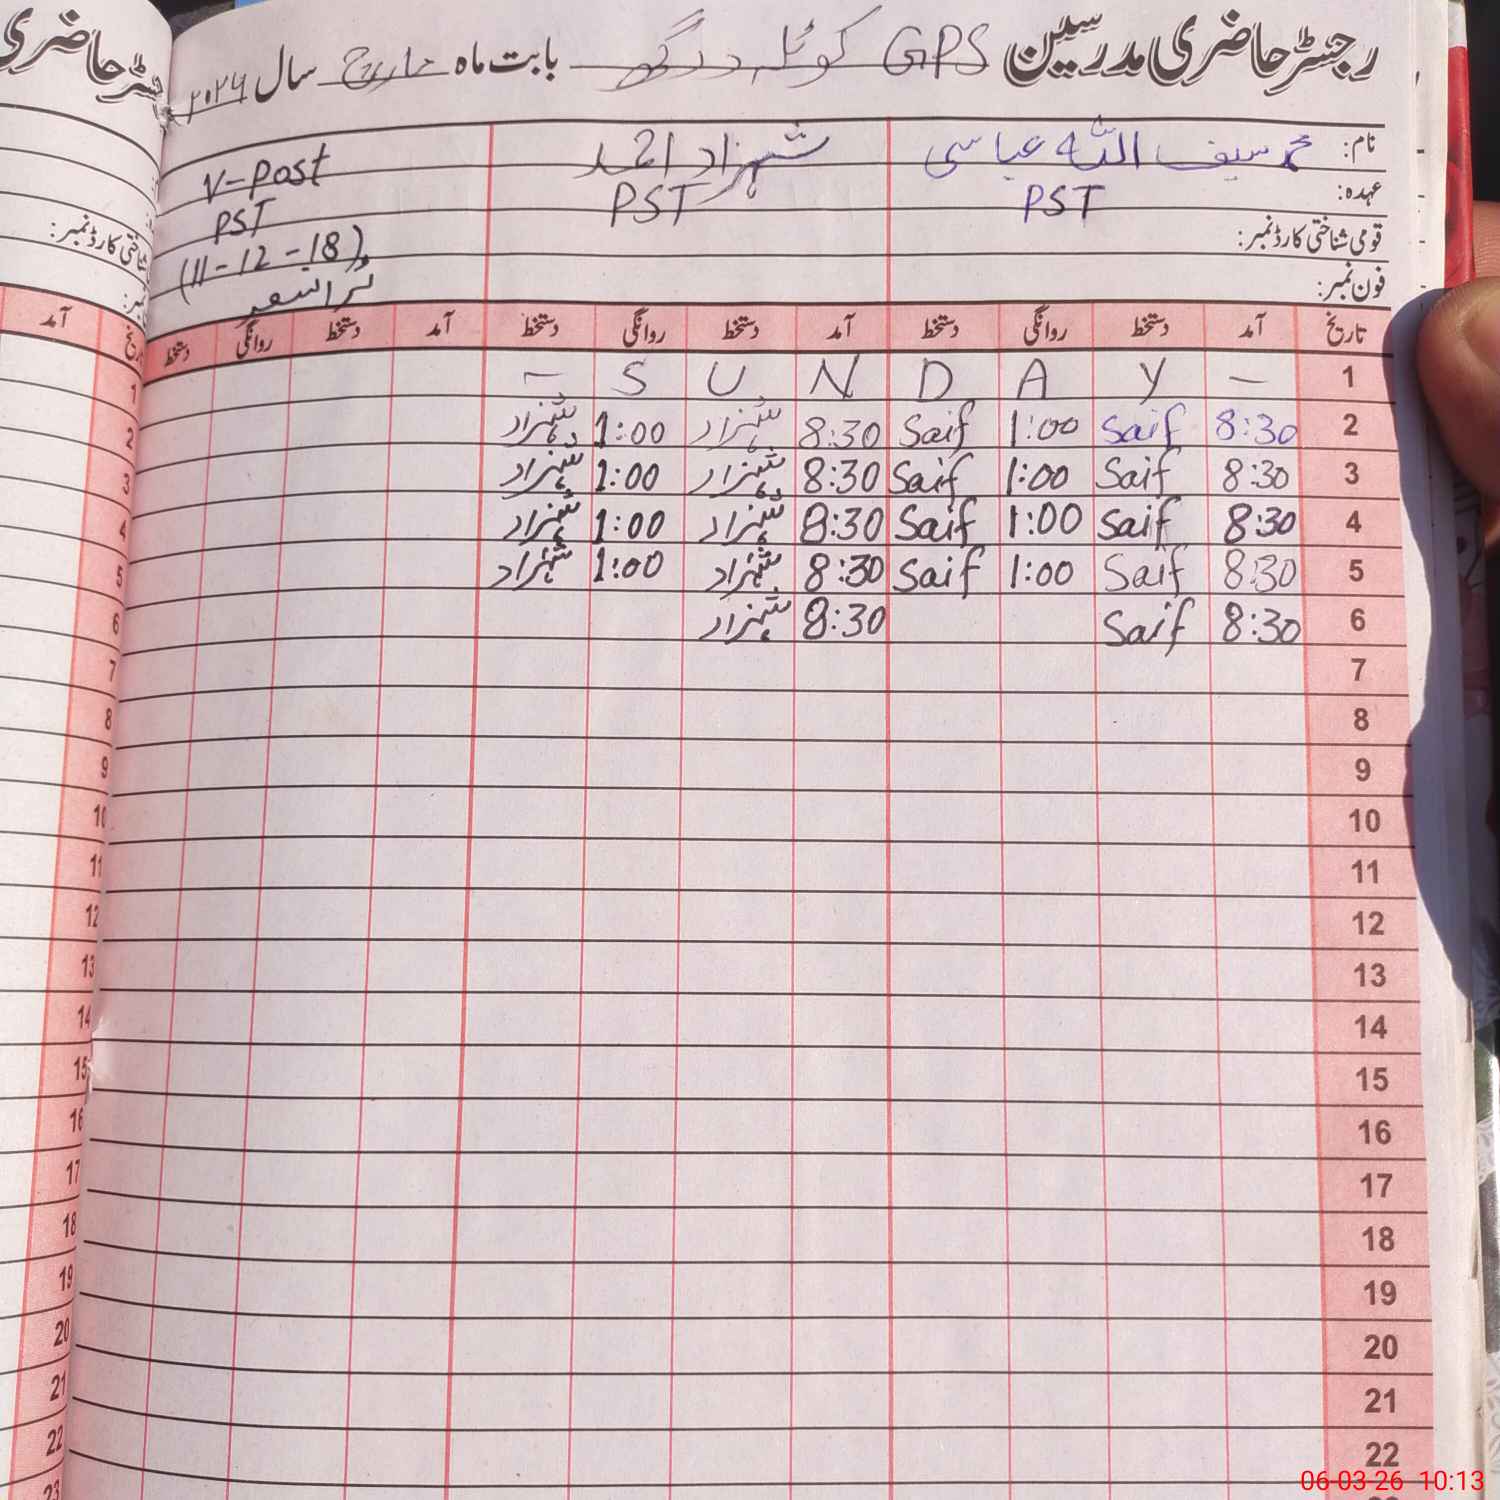 رجسٹر حاضری مدرسین GPS کوٹلہ درگھ بابت ماہ مارچ سال ۲۰۲۶
نام: محمد سیف اللہ عباسی شہزاد احمد V-Post
عہدہ: PST PST PST
قومی شناختی کارڈ نمبر: (11-12-18)
فون نمبر: ٹرانسفر
تاریخ آمد دستخط روانگی دستخط آمد دستخط روانگی دستخط آمد دستخط روانگی دستخط
1 – Y A D N U S –
2 8:30 Saif 1:00 Saif 8:30 شہزاد 1:00 شہزاد
3 8:30 Saif 1:00 Saif 8:30 شہزاد 1:00 شہزاد
4 8:30 Saif 1:00 Saif 8:30 شہزاد 1:00 شہزاد
5 8:30 Saif 1:00 Saif 8:30 شہزاد 1:00 شہزاد
6 8:30 Saif 8:30 شہزاد
7
8
9
10
11
12
13
14
15
16
17
18
19
20
21
22
رجسٹر حاضری
شناختی کارڈ نمبر:
نمبر:
تاریخ آمد
1
2
3
4
5
6
7
8
9
10
11
12
13
14
15
16
17
18
19
20
21
22
23
06-03-26 10:13